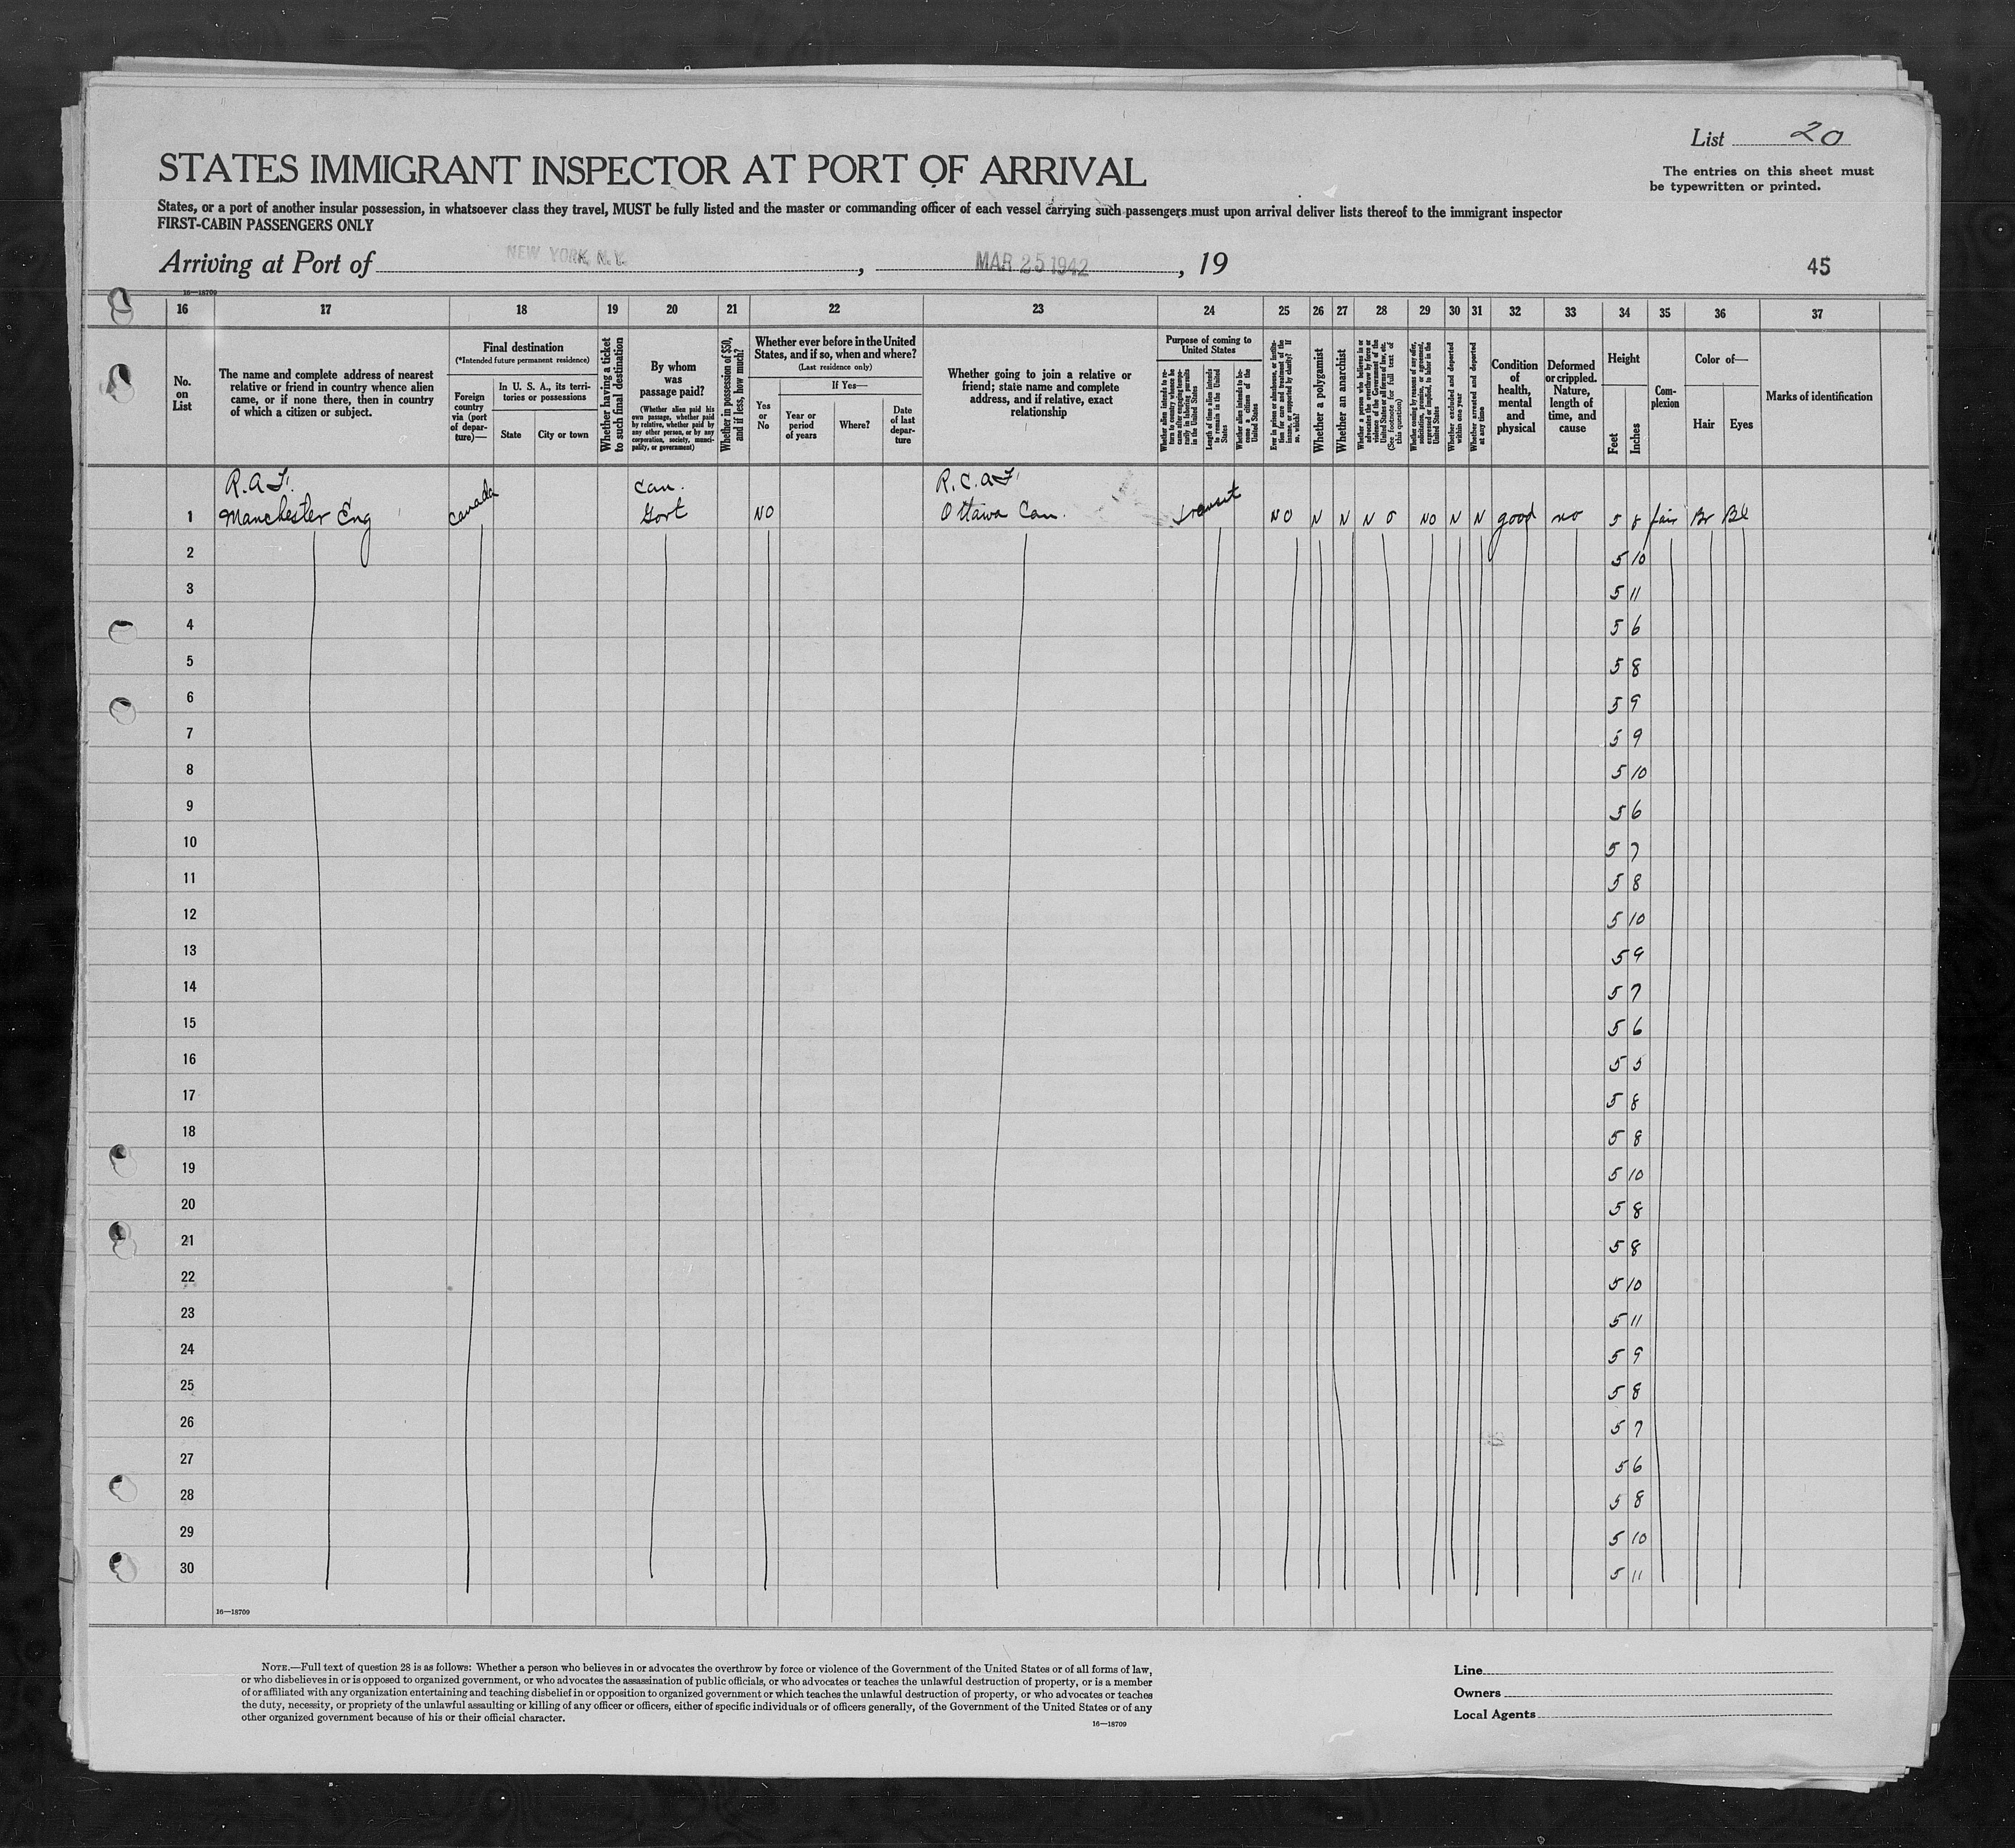 List 20
STATES IMMIGRANT INSPECTOR AT PORT OF ARRIVAL
The entries on this sheet must
be typewritten or printed.
States, or a port of another insular possession, in whatsoever class they travel, MUST be fully listed and the master or commanding officer of each vessel carrying such passengers must upon arrival deliver lists thereof to the immigrant inspector
FIRST-CABIN PASSENGERS ONLY
Arriving at Port of NEW YORK, N.Y. , MAR 25 1942 , 19
45
16—18709
16 17 18 19 20 21 22 23 24 25 26 27 28 29 30 31 32 33 34 35 36 37
No.
on
List
The name and complete address of nearest
relative or friend in country whence alien
came, or if none there, then in country
of which a citizen or subject.
Final destination
(*Intended future permanent residence)
Foreign
country
via (port
of depar-
ture)—
In U. S. A., its terri-
tories or possessions
State
City or town
Whether having a ticket
to such final destination
By whom
was
passage paid?
(Whether alien paid his
own passage, whether paid
by relative, whether paid by
any other person, or by any
corporation, society, munici-
pality, or government)
Whether in possession of $50,
and if less, how much?
Whether ever before in the United
States, and if so, when and where?
(Last residence only)
Yes
or
No
If Yes—
Year or
period
of years
Where?
Date
of last
depar-
ture
Whether going to join a relative or
friend; state name and complete
address, and if relative, exact
relationship
Purpose of coming to
United States
Whether alien intends to re-
turn to country whence he
came after engaging tempo-
rarily in laboring pursuits
in the United States
Length of time alien intends
to remain in the United
States
Whether alien intends to be-
come a citizen of the
United States
Ever in prison or almshouse, or institu-
tion for care and treatment of the
insane, or supported by charity? If
so, which?
Whether a polygamist
Whether an anarchist
Whether a person who believes in or
advocates the overthrow by force or
violence of the Government of the
United States or all forms of law, etc.
(See footnote for full text of
this question)
Whether coming by reason of any offer,
solicitation, promise, or agreement,
expressed or implied, to labor in the
United States
Whether excluded and deported
within one year
Whether arrested and deported
at any time
Condition
of
health,
mental
and
physical
Deformed
or crippled.
Nature,
length of
time, and
cause
Height
Feet
Inches
Com-
plexion
Color of—
Hair
Eyes
Marks of identification
R.A.F. Can. R.C.A.F.
1 Manchester Eng Canada Govt NO Ottawa Can. transit NO N N N O NO N N good no 5 8 fair Br Bl
2 5 10
3 5 11
4 5 6
5 5 8
6 5 9
7 5 9
8 5 10
9 5 6
10 5 7
11 5 8
12 5 10
13 5 9
14 5 7
15 5 6
16 5 5
17 5 8
18 5 8
19 5 10
20 5 8
21 5 8
22 5 10
23 5 11
24 5 9
25 5 8
26 5 7
27 5 6
28 5 8
29 5 10
30 5 11
16—18709
NOTE.—Full text of question 28 is as follows: Whether a person who believes in or advocates the overthrow by force or violence of the Government of the United States or of all forms of law,
or who disbelieves in or is opposed to organized government, or who advocates the assassination of public officials, or who advocates or teaches the unlawful destruction of property, or is a member
of or affiliated with any organization entertaining and teaching disbelief in or opposition to organized government or which teaches the unlawful destruction of property, or who advocates or teaches
the duty, necessity, or propriety of the unlawful assaulting or killing of any officer or officers, either of specific individuals or of officers generally, of the Government of the United States or of any
other organized government because of his or their official character.
16—18709
Line
Owners
Local Agents